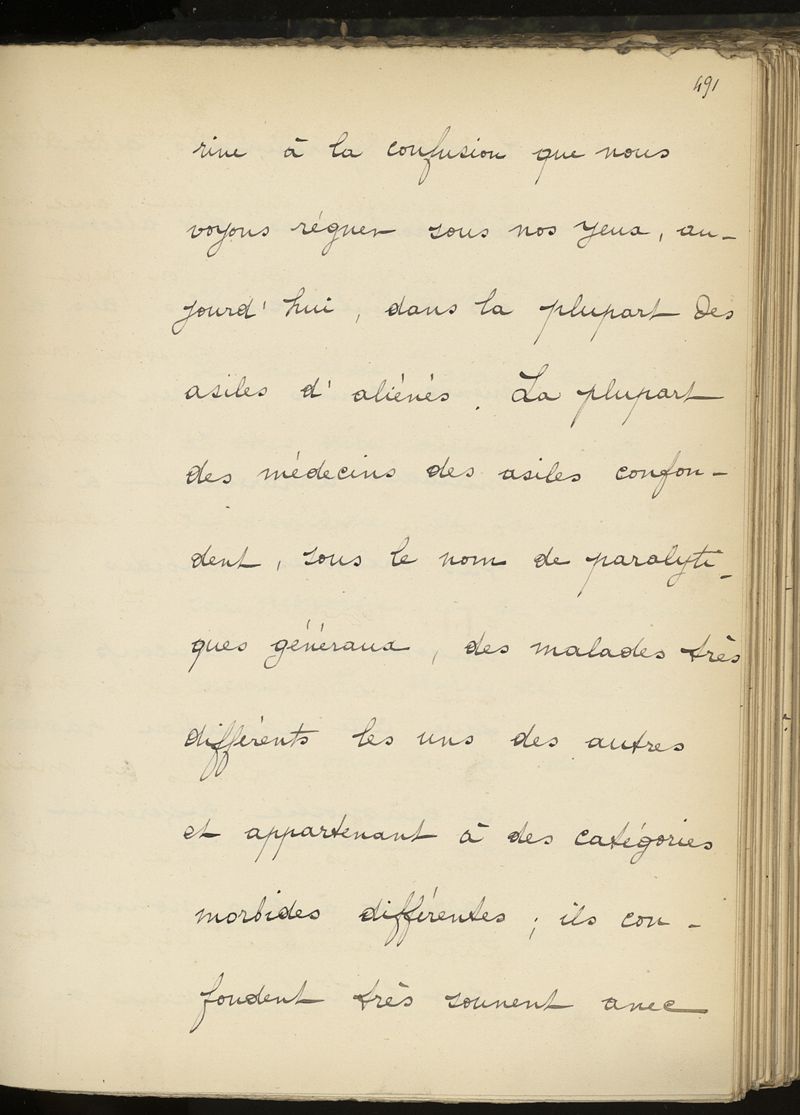 491
rive, à la confusion que nous
voyons régner sous nos yeux, au-
jourd'hui, dans la plupart des
asiles d'aliénés. La plupart
des médecins des asiles confon-
dent, sous le nom de paralyti-
ques généraux, des malades très
différents les uns des autres
et appartenant à des catégories
morbides différentes; ils con-
fondent très souvent avec